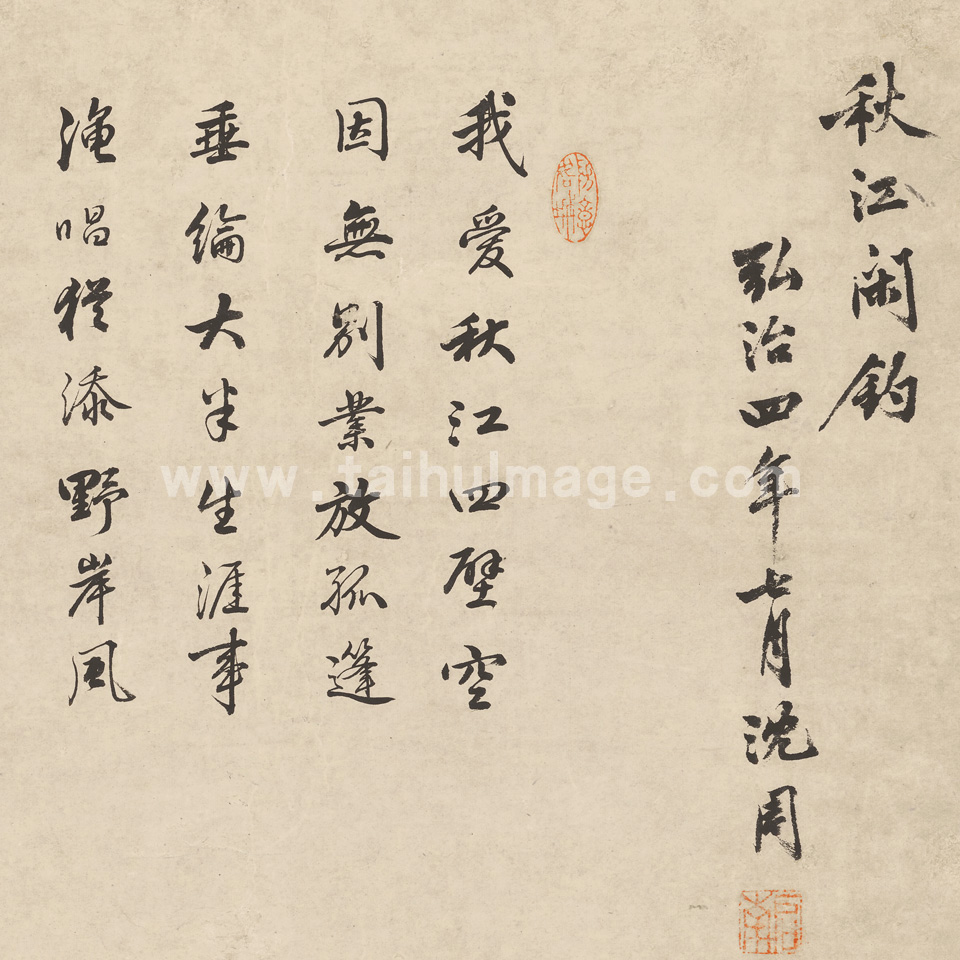 秋江閑釣
弘治四年七月沈周
我愛秋江四壁空
因無別業放孤篷
垂綸大半生涯事
漁唱猶添野岸風
www.taihuImage.com